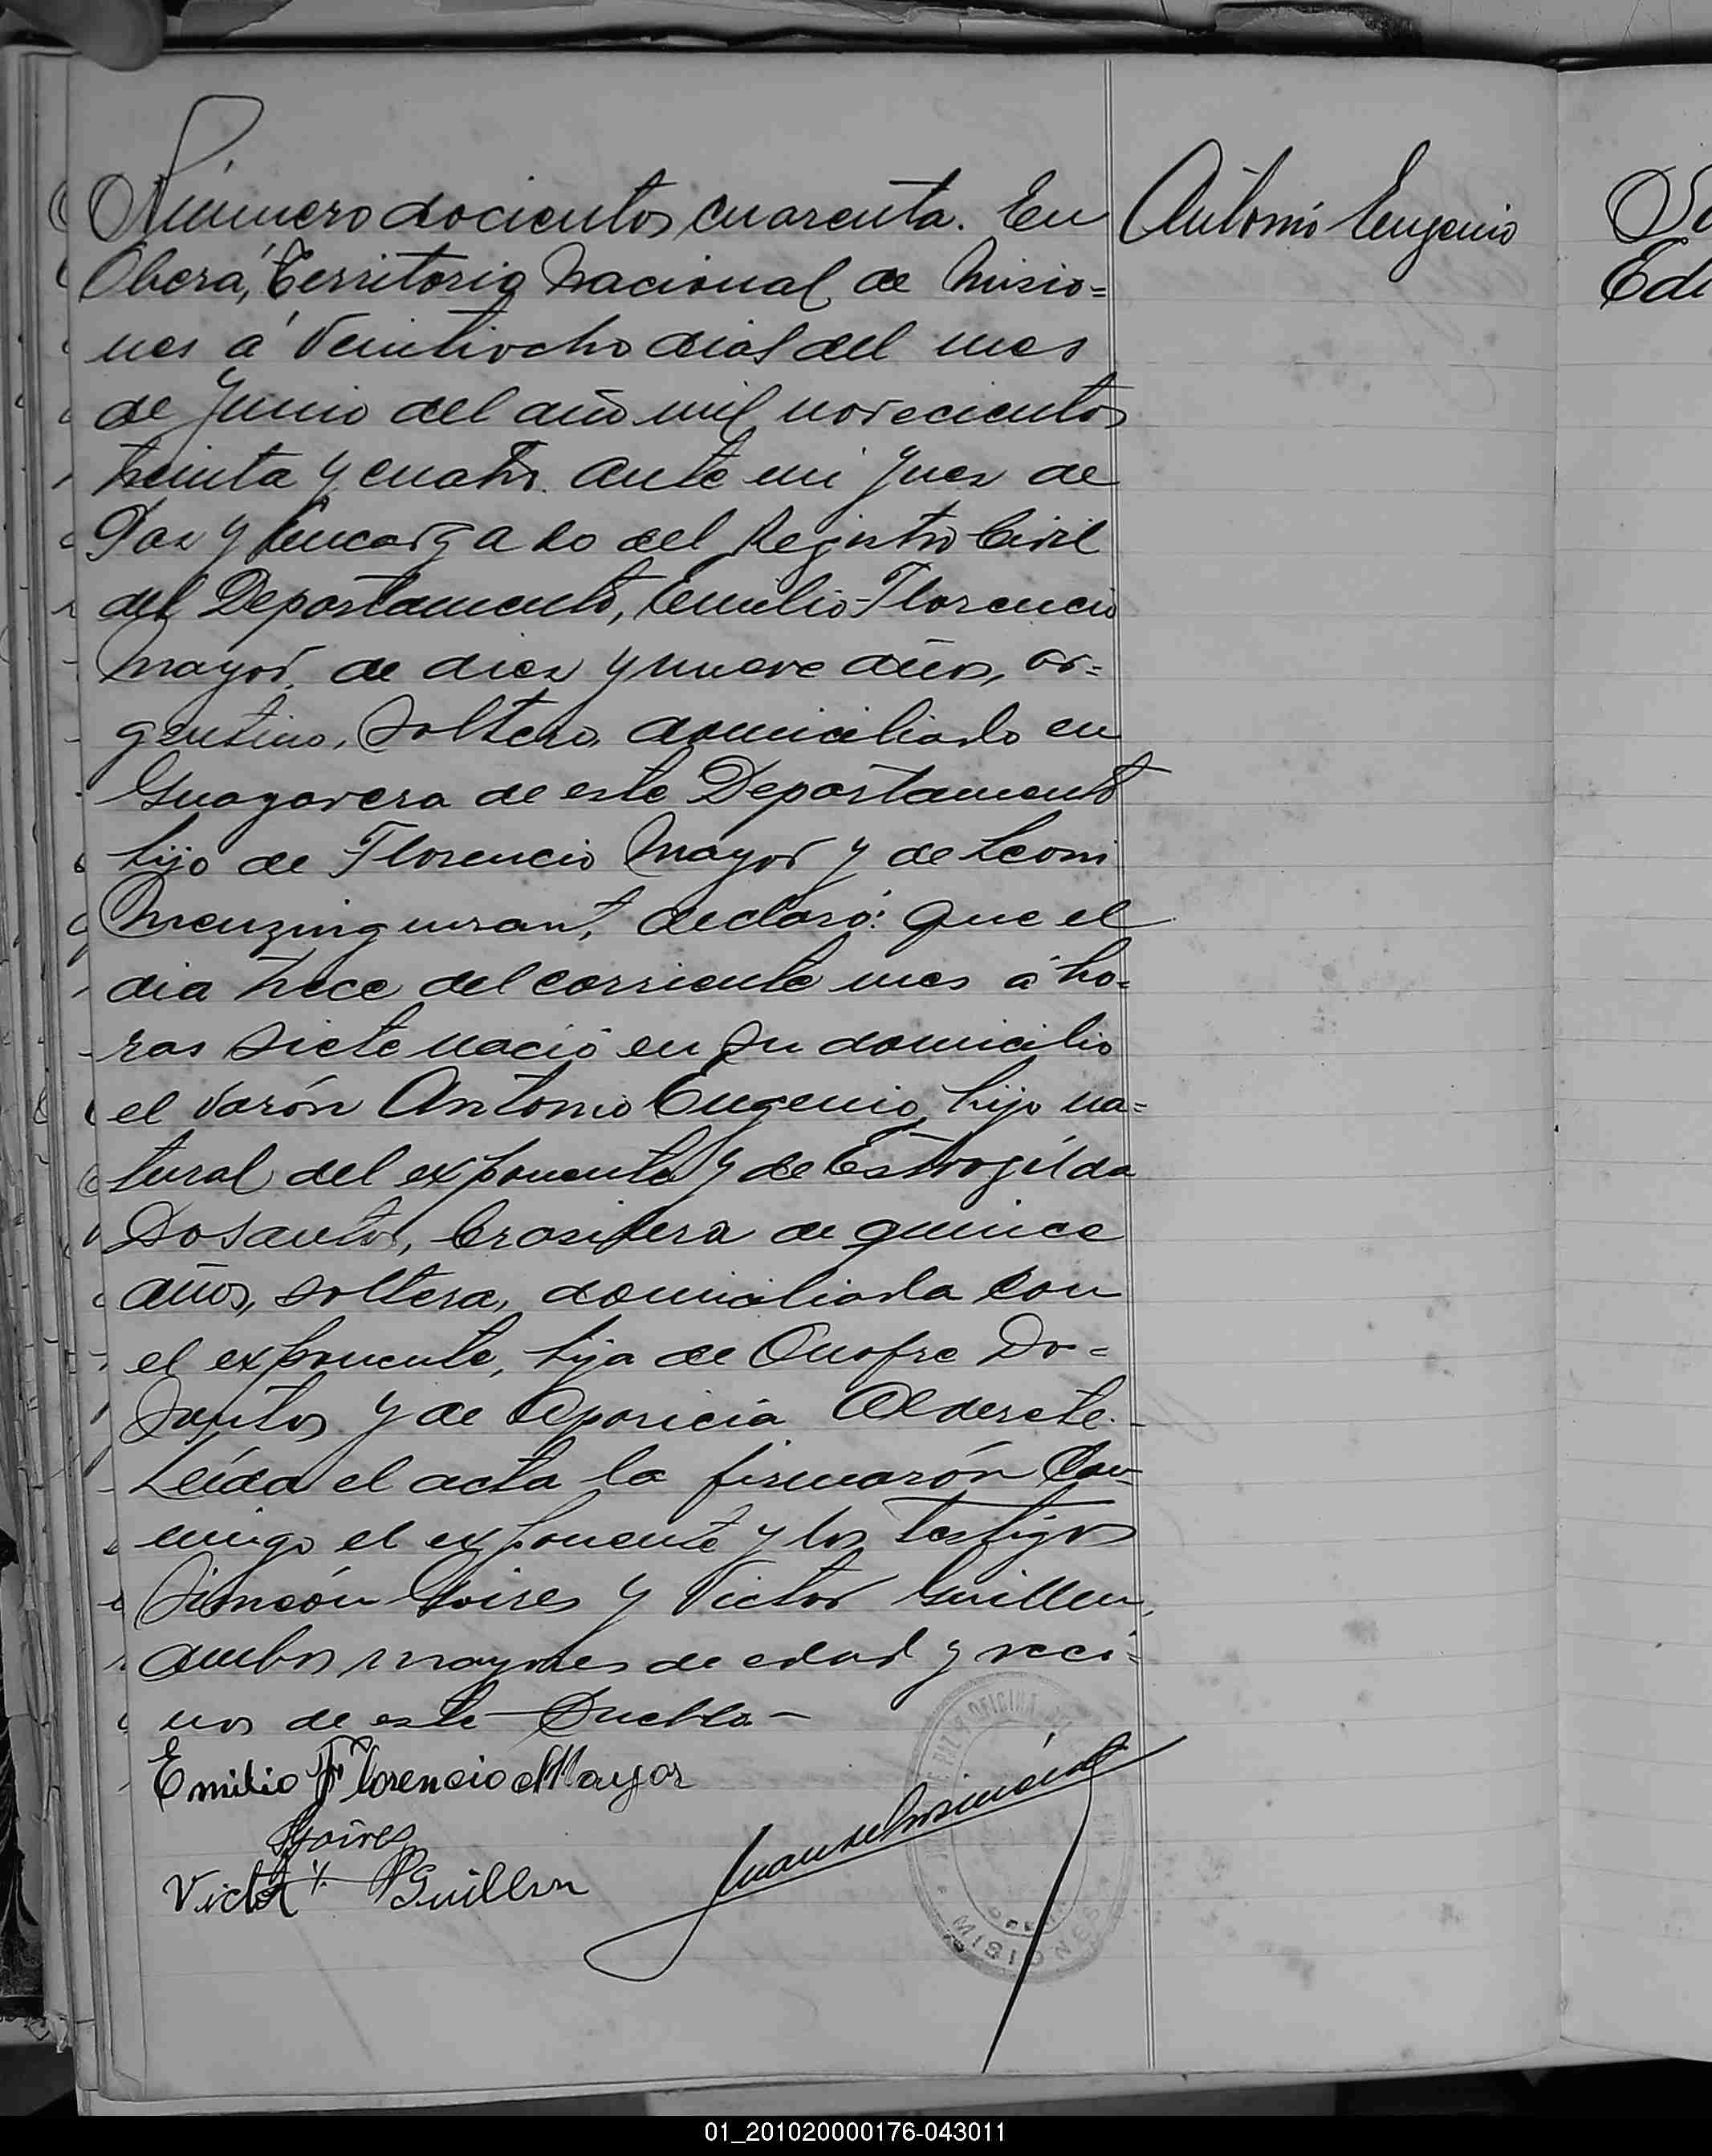 Número docientos cuarenta. En
Antonio Eugenio
Oberá, Territorio Nacional de Misio=
nes á Veintiocho dias del mes
de Junio del año mil novecientos
treinta y cuatro. ante mi Juez de
Paz y Encargado del Registro Civil
del Departamento, Emilio Florencio
Mayor, de diez y nueve años, ar=
gentino, Soltero, domiciliado en
Guayavera de este Departamento
hijo de Florencio Mayor y de Leoni
declaró: Que el
dia trece del corriente mes á ho=
ras siete nació en su domicilio
el varón Antonio Eugenio, hijo na=
tural del exponente y de Estrogilda
DoSantos, brasilera de quince
años, soltera, domiciliada con
el exponente, hija de Onofre Do=
Santos y de Aparicia Alderete.-
Leída el acta la firmarón Con=
migo el exponente y los testigos
Simeón Yaires y Victor Guillen,
ambos mayores de edad y veci=
nos de este Pueblo-
Emilio Florencio Mayor
Victor Guillen
OFICINA
MISIONES
Edu
01_201020000176-043011